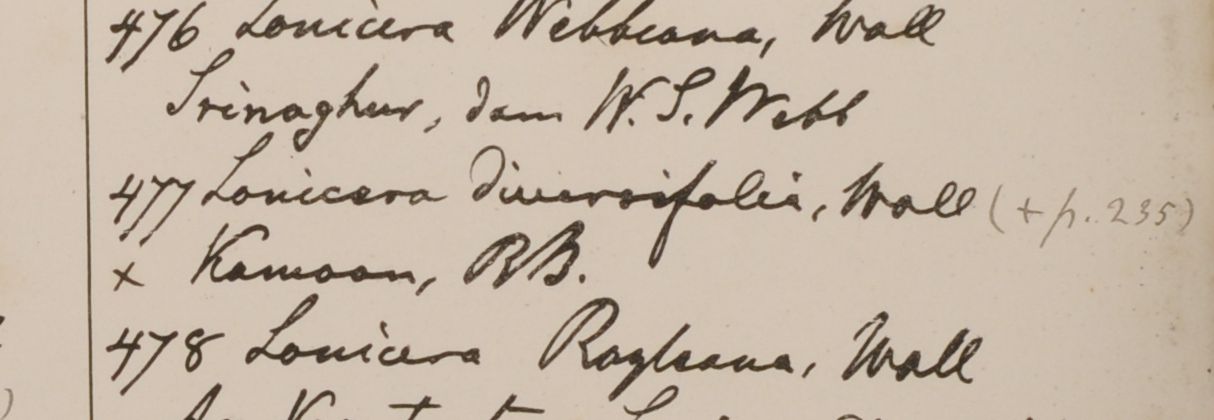 476 Lonicera Webbeana, Wall
Srinaghur, dam W. S. Webb
477 Lonicera diversifolia, Wall (+ p. 235)
x Kamoon, RB.
478 Lonicera Royleana, Wall